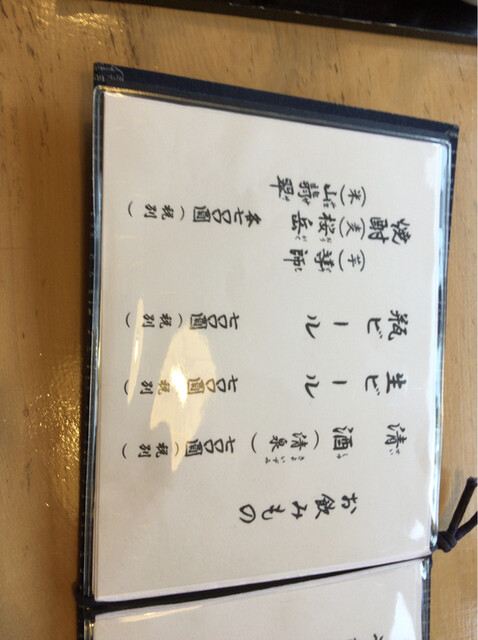 お飲みもの
清酒(清泉) 七〇〇圓(税別)
生ビール 七〇〇圓(税別)
瓶ビール 七〇〇圓(税別)
焼酎
(芋)
(麦)桜岳 各七〇〇圓(税別)
(米)山翡翠